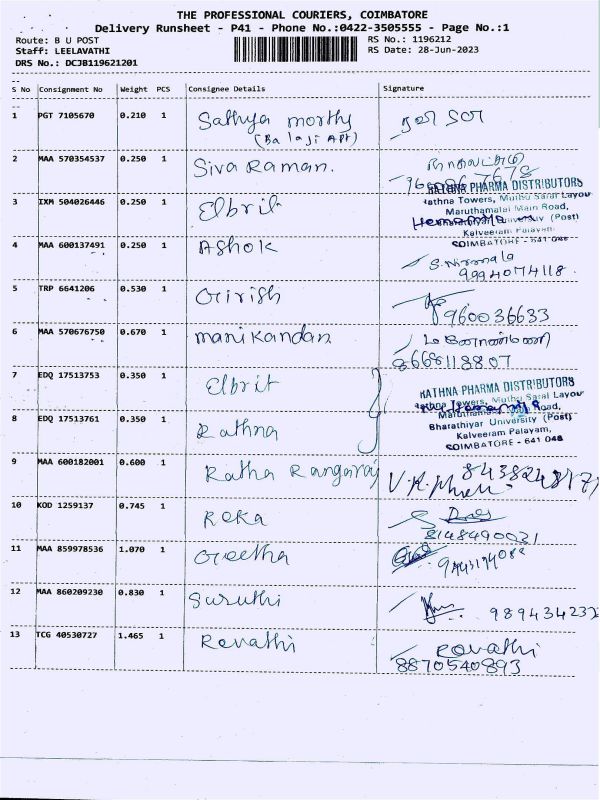 THE PROFESSIONAL COURIERS, COIMBATORE
Delivery Runsheet - P41 - Phone No.:0422-3505555 - Page No.:1
Route: B U POST RS No.: 1196212
Staff: LEELAVATHI RS Date: 28-Jun-2023
DRS No.: DCJB119621201
S No Consignment No Weight PCS Consignee Details Signature
1 PGT 7105670 0.210 1 Sathya morthy
(Balaji Apt)
2 MAA 570354537 0.250 1 Siva Raman.
RATHNA PHARMA DISTRIBUTORS
3 IXM 504026446 0.250 1 Elbrit Rathna Towers, Muthu Saral Layou
Maruthamalai Main Road,
University (Post)
Kalveeram Palayam,
COIMBATORE - 641 046
4 MAA 600137491 0.250 1 Ashok S. Nirmala
9994074118.
5 TRP 6641206 0.530 1 Girish
960036633
6 MAA 570676750 0.670 1 manikandan
8668118807
7 EDQ 17513753 0.350 1 Elbrit RATHNA PHARMA DISTRIBUTORS
Rathna Towers, Muthu Saral Layou
Road,
8 EDQ 17513761 0.350 1 Rathna Bharathiyar University (Post)
Kalveeram Palayam,
COIMBATORE - 641 046
9 MAA 600182001 0.600 1 Ratha Rangaraj
10 KOD 1259137 0.745 1 Reka
8148490021
11 MAA 859978536 1.070 1 Geetha
12 MAA 860209230 0.830 1 Suruthi 989434232
13 TCG 40530727 1.465 1 Revathi Revathi
8870540893